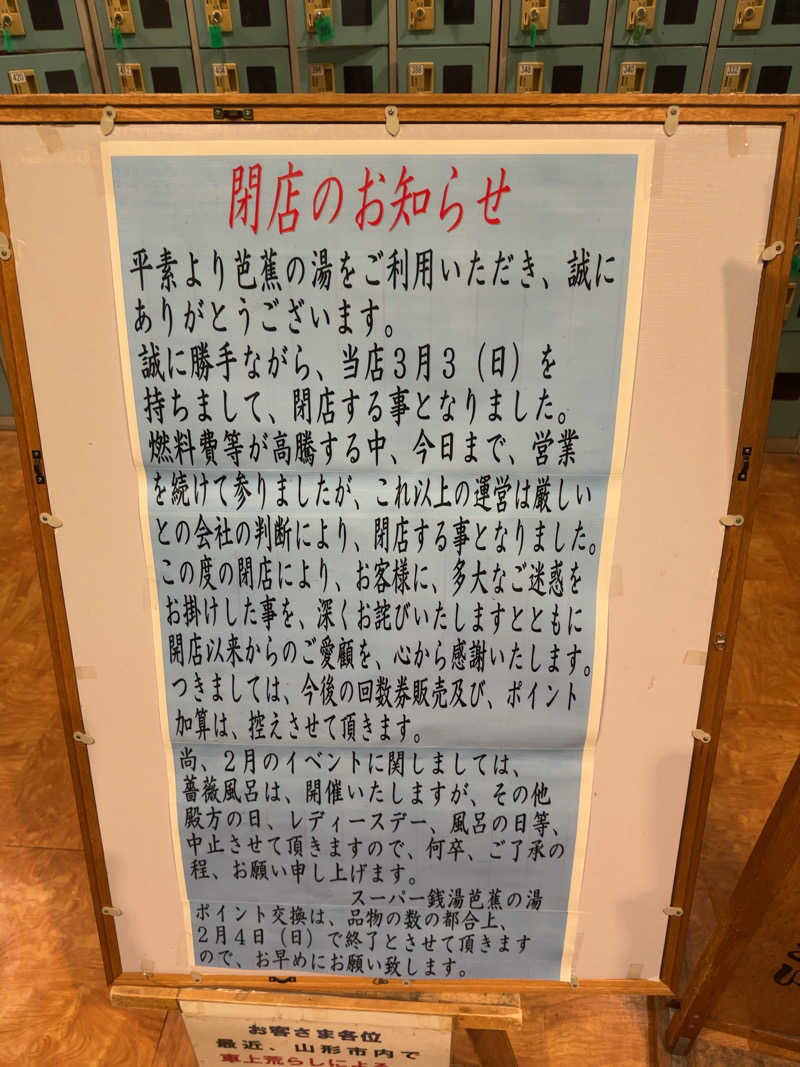 420
412
404
396
388
348
340
332
閉店のお知らせ
平素より芭蕉の湯をご利用いただき、誠に
ありがとうございます。
誠に勝手ながら、当店3月3(日)を
持ちまして、閉店する事となりました。
燃料費等が高騰する中、今日まで、営業
を続けて参りましたが、これ以上の運営は厳しい
との会社の判断により、閉店する事となりました。
この度の閉店により、お客様に、多大なご迷惑を
お掛けした事を、深くお詫びいたしますとともに
開店以来からのご愛顧を、心から感謝いたします。
つきましては、今後の回数券販売及び、ポイント
加算は、控えさせて頂きます。
尚、2月のイベントに関しましては、
薔薇風呂は、開催いたしますが、その他
殿方の日、レディースデー、風呂の日等、
中止させて頂きますので、何卒、ご了承の
程、お願い申し上げます。
スーパー銭湯芭蕉の湯
ポイント交換は、品物の数の都合上、
2月4日(日)で終了とさせて頂きます
ので、お早めにお願い致します。
お客さま各位
最近、山形市内で
車上荒らしによる